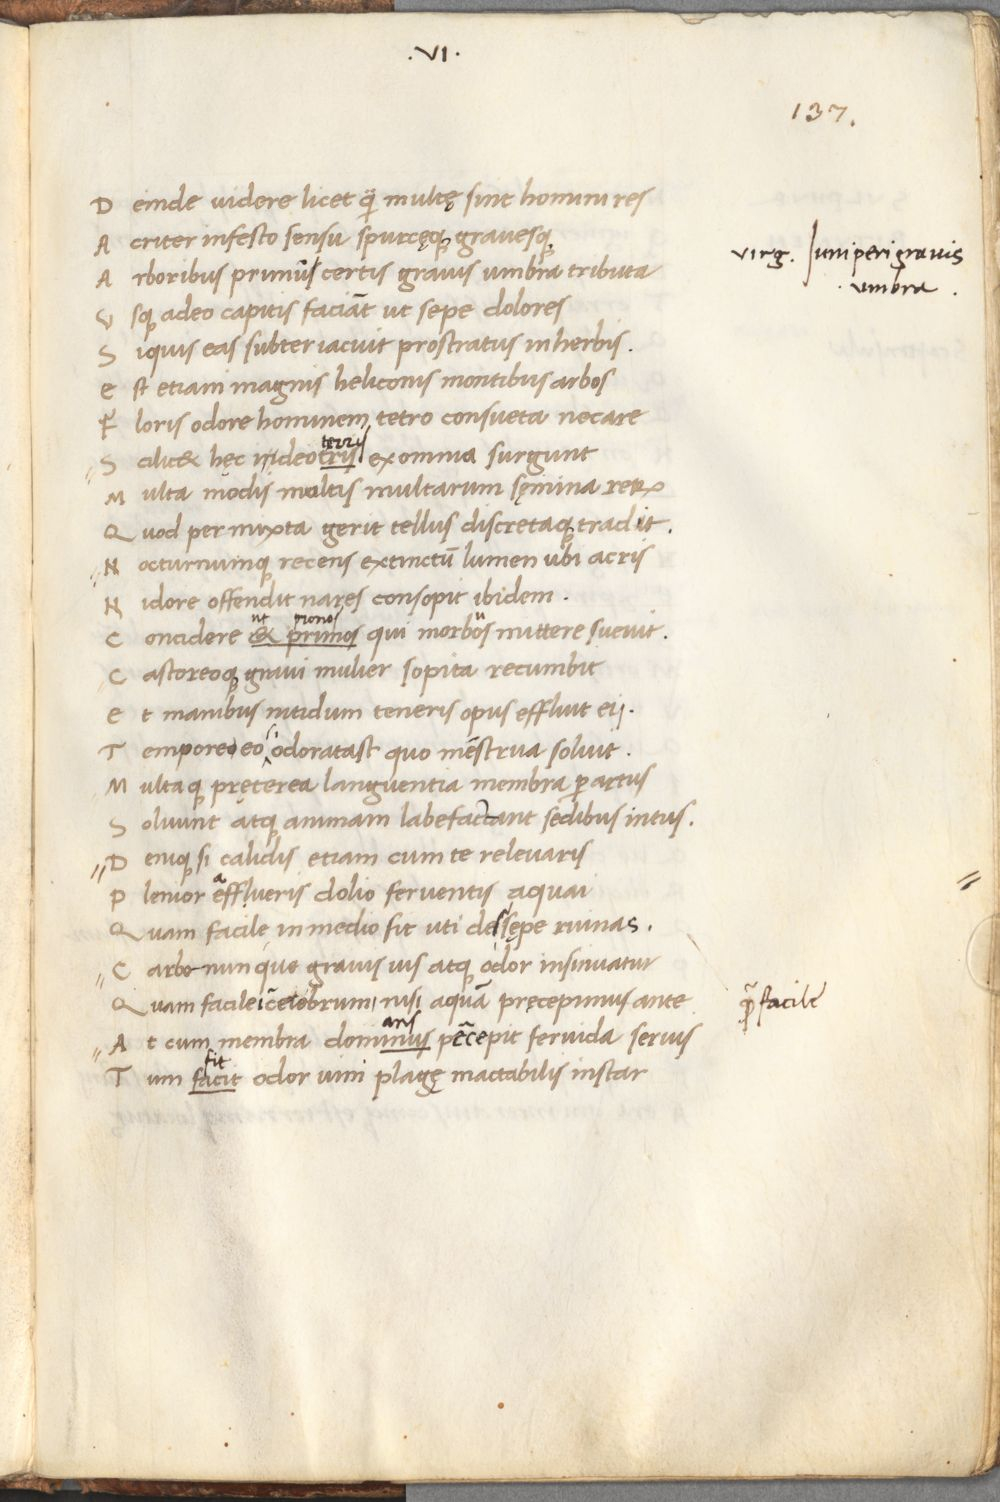 .VI.
137.
D einde uidere licet q̈ multę sint homini res
A criter infesto sensu spurcęq; grauesq;
virg. Iuniperi gravis
A rboribus primū certis grauis umbra tributa
umbra .
V sq; adeo capitis faciāt ut sepe dolores
S iquis eas subter iacuit prostratus in herbis .
E st etiam magnis heliconis montibus arbos
F loris odore hominem tetro consueta necare
terris
S cilic& hęc ideo tris ex omnia surgunt
M ulta modis multis multarum sęmina rerꝝ
Q uod permixta gerit tellus discretaq; tradit .
N octurnumq; recens extinctū lumen ubi acris
N idore offendit nares consopit ibidem .
ut pronos u
C oncidere & primos qui morbos mittere suevit .
C astoreoq; graui mulier sopita recumbit
E t manibus nitidum teneris opus effluit eij .
T empore eo si odoratast quo mēstrua soluit .
M ultaq; pręterea languentia membra p artus
S oluunt atq; animam labefactant sedibus intus .
D eniq; si calidis etiam cum te relevaris
a
P lenior efflueris dolio ferventis aquai
Q uam facile in medio fit uti des sępe ruinas .
C arbonunque grauis uis atq; odor insinuatur
Q uam facile i cēręobrum, nisi aquā pręcepimus ante
q̄ facile
anis
A t cum membra dominus pēcepit feruida seruis
fit
T um facit odor uini plagę mactabilis instar